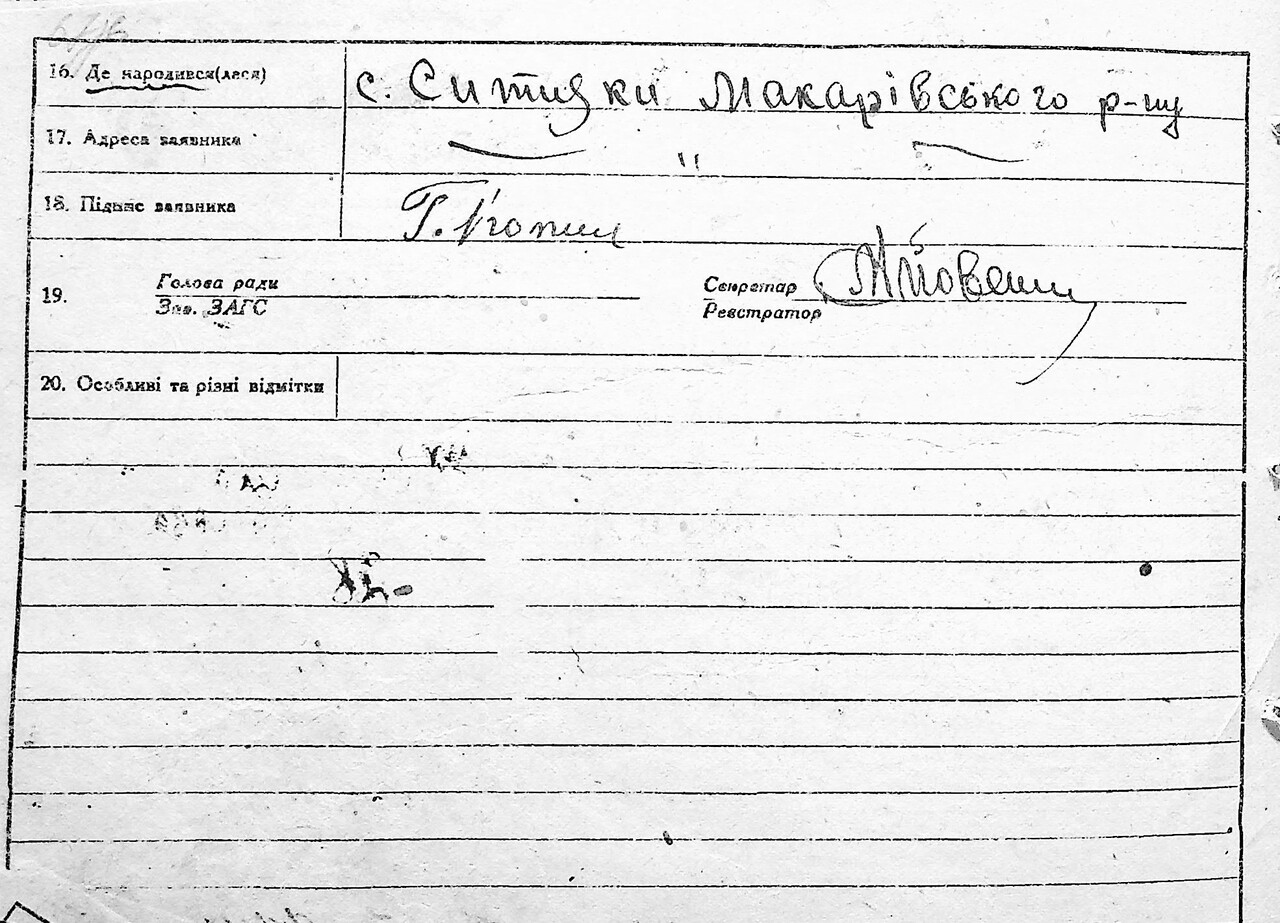 16. Де народився(лася) с. Ситняки Макарівського р-ну
17. Адреса заявника — " —
18. Підпис заявника Г.
19. Голова ради
Зав. ЗАГС
Секретар
Реєстратор
20. Особливі та різні відмітки